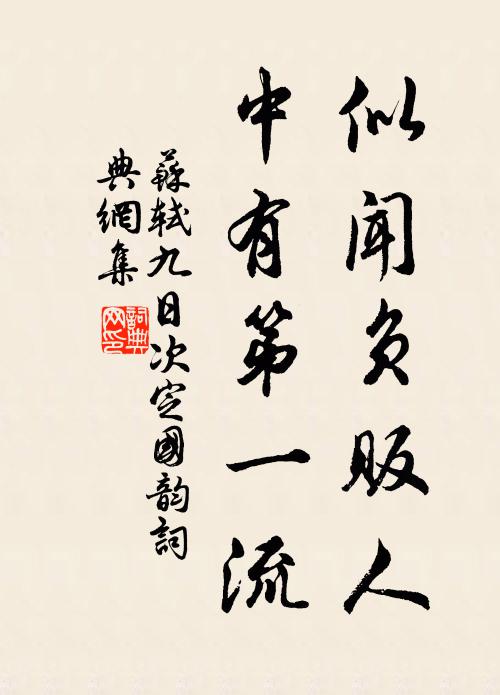 似闻负贩人
中有第一流
蘇軾九日次定國韵詞
典網集
詞典网印